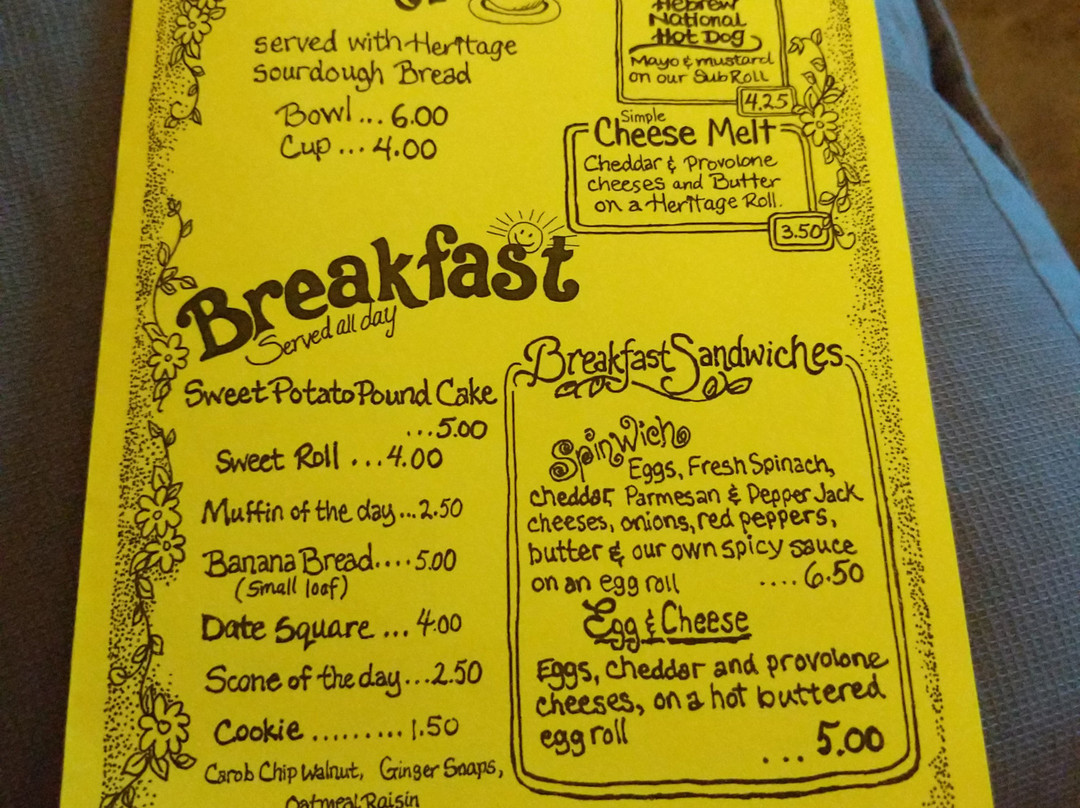 served with Heritage
Sourdough Bread
Bowl... 6.00
Cup ... 4.00
Hebrew
National
Hot Dog
Mayo & mustard
on our Sub Roll
4.25
Simple
Cheese Melt
Cheddar & Provolone
cheeses and Butter
on a Heritage Roll.
3.50
Breakfast
Served all day
Sweet Potato Pound Cake
...5.00
Sweet Roll ...4.00
Muffin of the day...2.50
Banana Bread....5.00
(Small loaf)
Date Square ... 4.00
Scone of the day...2.50
Cookie ......... 1.50
Carob Chip Walnut, Ginger Snaps,
Oatmeal Raisin
Breakfast Sandwiches
SpinWich
Eggs, Fresh Spinach,
cheddar, Parmesan & Pepper Jack
cheeses, onions, red peppers,
butter & our own spicy sauce
on an egg roll .... 6.50
Egg & Cheese
Eggs, cheddar and provolone
cheeses, on a hot buttered
egg roll
... 5.00